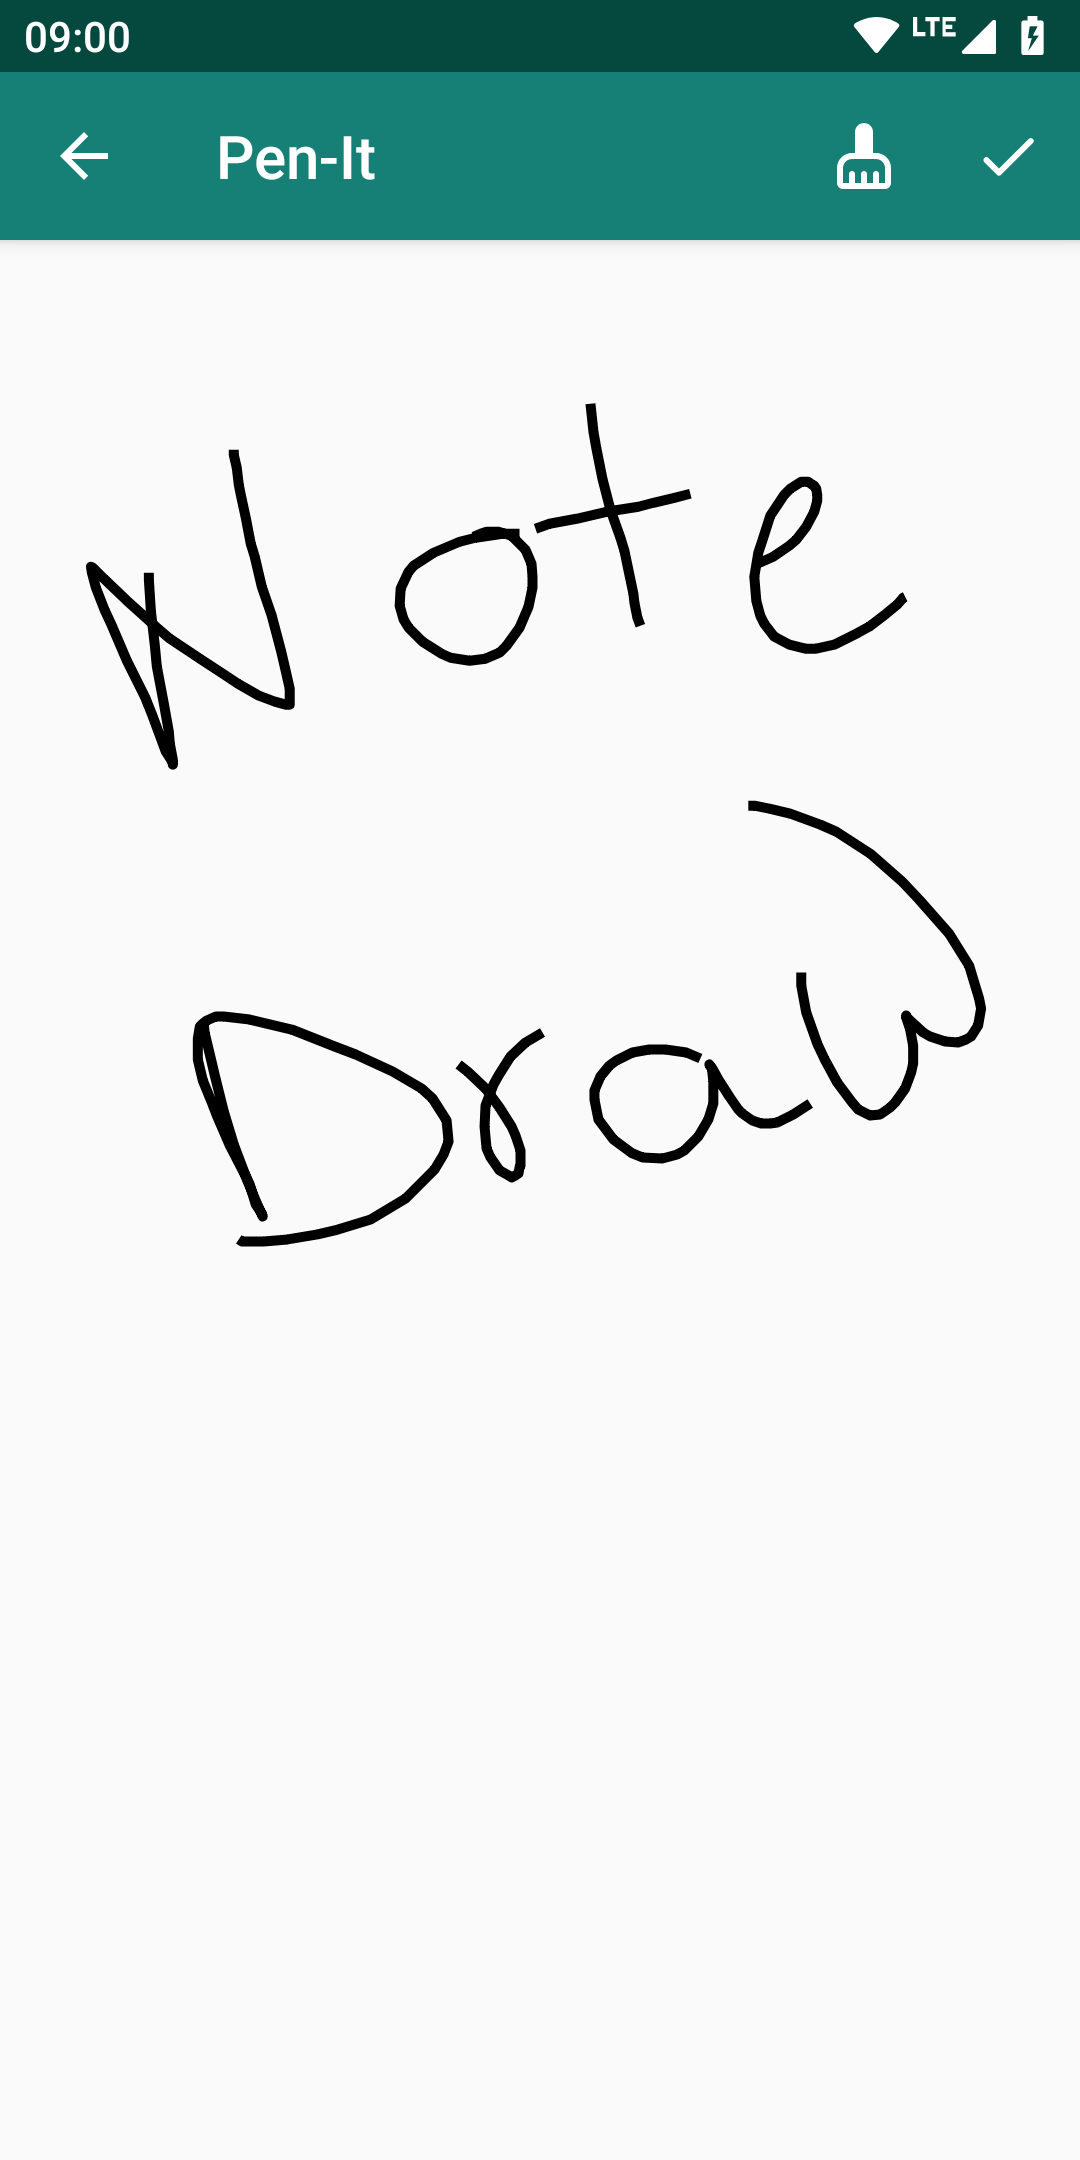 09:00 LTE
Pen-It
Note
Draw